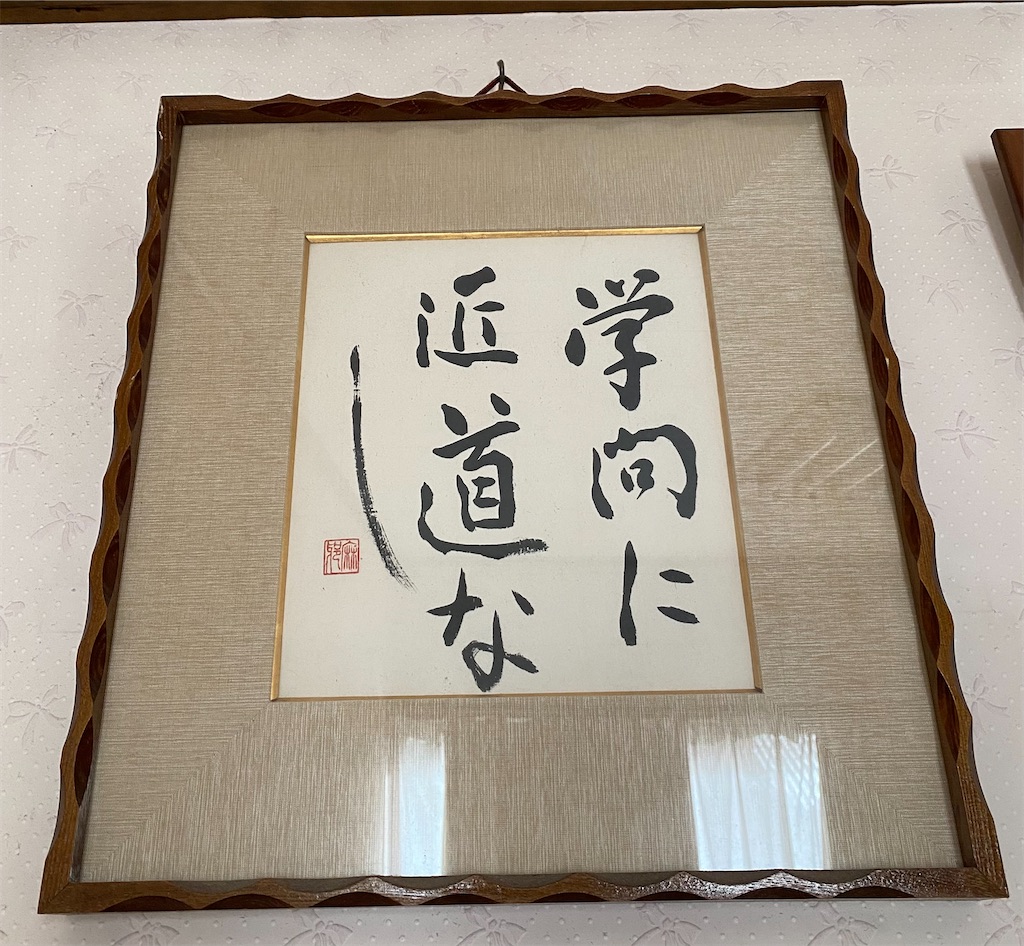 学問に
近道な
し